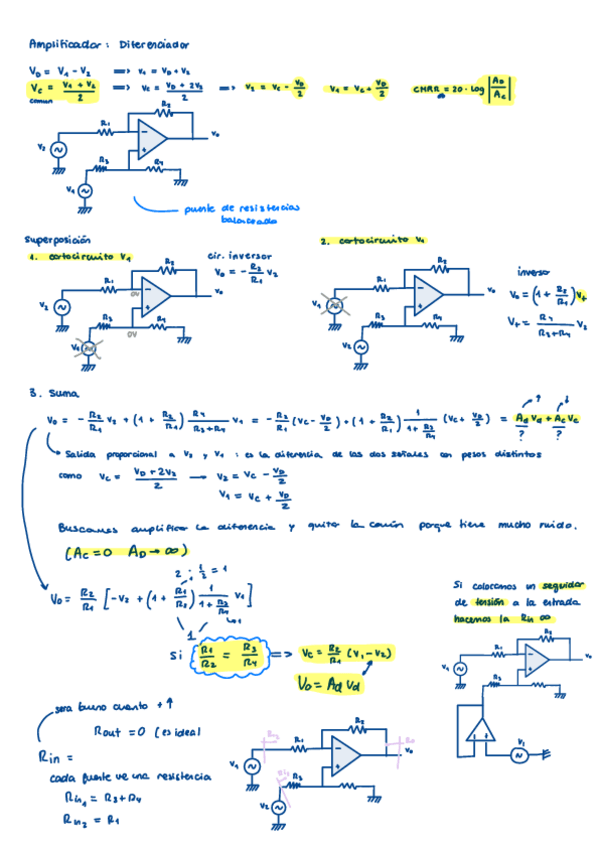 Amplificador: Diferenciador
V_D = V_1 - V_2 ⟹ V_1 = V_D + V_2
V_C = (V_1 + V_2)/2 ⟹ V_C = (V_D + 2V_2)/2 ⟹ V_2 = V_C - V_D/2 V_1 = V_C + V_D/2 CMRR = 20 · Log |A_D/A_C|
común
R_2
R_1
V_2
R_3
R_4
V_1
V_0
puente de resistencias
balanceado
Superposición
1. cortocircuito V_1
cir. inversor
V_0 = - R_2/R_1 V_2
R_2
R_1
V_2
0V
R_3
R_4
0V
V_1
V_0
2. cortocircuito V_1
R_2
R_1
V_1
R_3
R_4
V_2
V_0
inverso
V_0 = (1 + R_2/R_1) V_+
V_+ = R_4/(R_3+R_4) V_2
3. Suma
V_0 = - R_2/R_1 V_2 + (1 + R_2/R_1) R_4/(R_3+R_4) V_1 = - R_2/R_1 (V_C - V_D/2) + (1 + R_2/R_1) 1/(1 + R_3/R_4) (V_C + V_D/2) = A_d V_d + A_c V_c
? ?
Salida proporcional a V_2 y V_1 : es la diferencia de las dos señales con pesos distintos
como V_C = (V_D + 2V_2)/2 → V_2 = V_C - V_D/2
V_1 = V_C + V_D/2
Buscamos amplificar la diferencia y quitar la común porque tiene mucho ruido.
(A_C = 0 A_D → ∞)
2 · 1/2 = 1
V_0 = R_2/R_1 [-V_2 + (1 + R_1/R_2) 1/(1 + R_3/R_4) V_1]
1
Si R_1/R_2 = R_3/R_4 ⟹ V_C = R_2/R_1 (V_1 - V_2)
V_0 = A_d V_d
Si colocamos un seguidor
de tensión a la entrada
hacemos la Rin ∞
R_2
R_1
V_2
R_3
V_0
V_1
será bueno cuanto + ↑
Rout = 0 (es ideal
Rin =
cada fuente ve una resistencia
Rin_1 = R_3 + R_4
Rin_2 = R_1
R_2
R_1
V_1
R_3
V_2
V_0